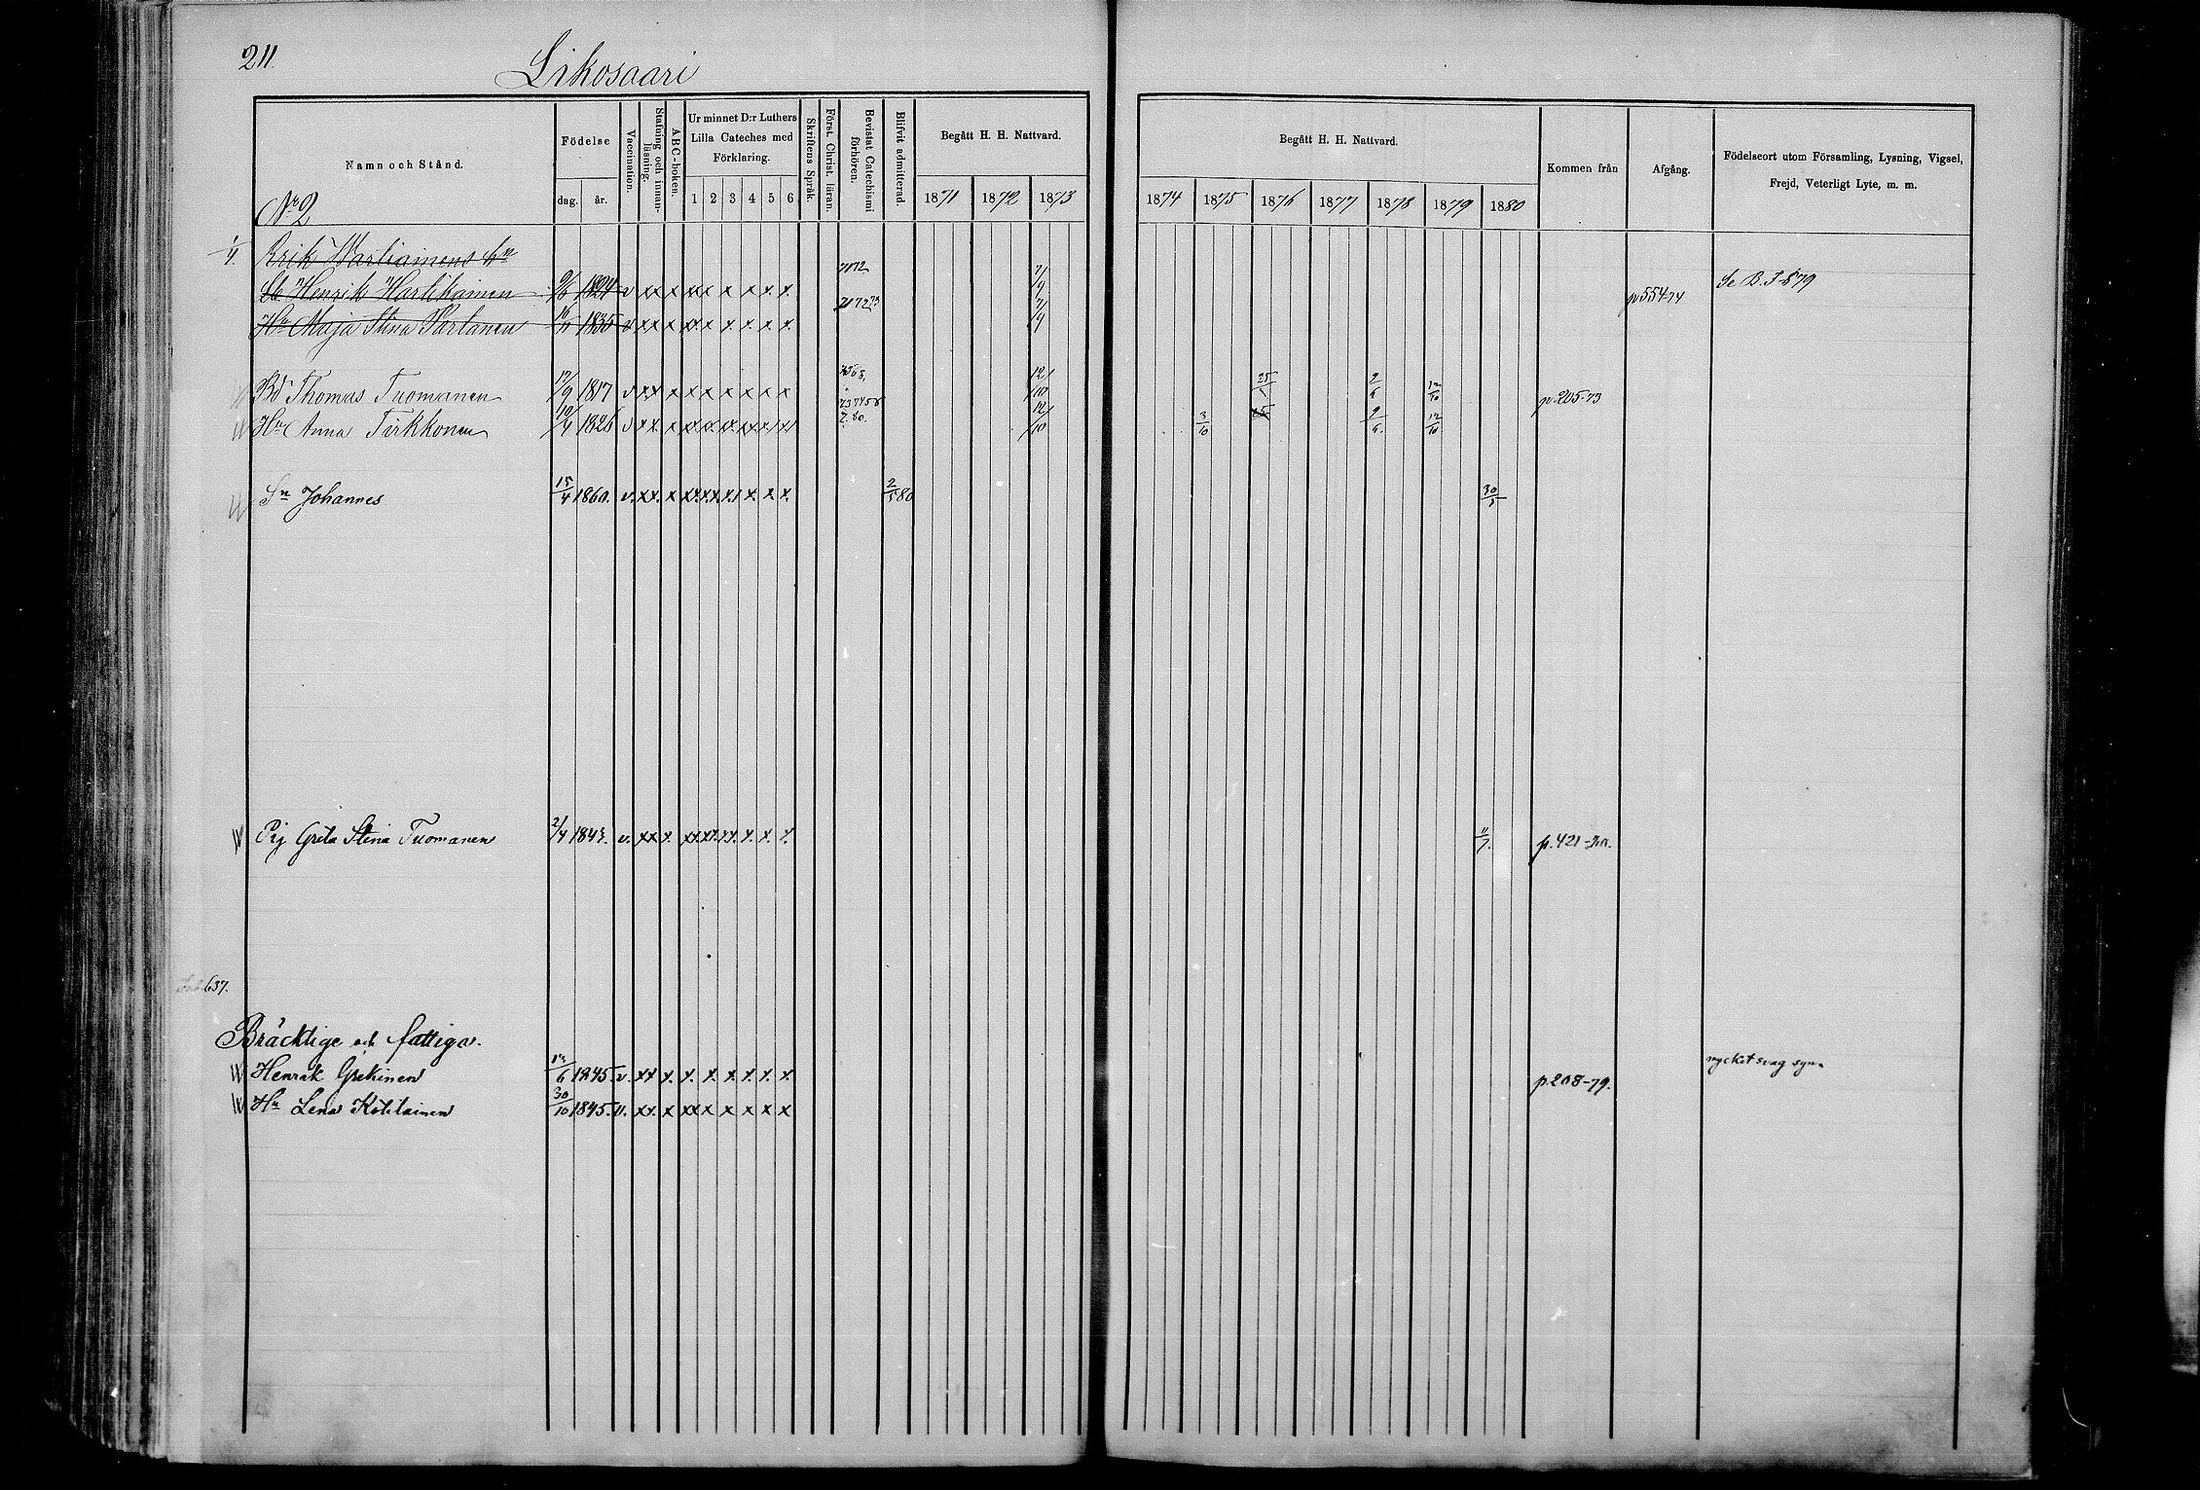 211.
Likosaari
Namn och Stånd.
Födelse
dag.
år.
Vaccination.
Stafning och innanläsning.
ABC-boken.
Ur minnet D:r Luthers
Lilla Cateches med
Förklaring.
1 2 3 4 5 6
Skriftens Språk.
Först. Christ. läran.
Bevistat Catechismi förhören.
Blifvit admitterad.
Begått H. H. Nattvard.
1871 1872 1873
Begått H. H. Nattvard.
1874 1875 1876 1877 1878 1879 1880
Kommen från
Afgång.
Födelseort utom Församling, Lysning, Vigsel,
Frejd, Veterligt Lyte, m. m.
No 2
1/4. Erik Wartiainens
7172
Henrik Hartikainen 1824 v xx x xx x x x x x. 7/9 p 554-74 Se B. I 879
717273
Hu Maja Stina Partanen 1835 v xx x xx x x. x. x x. 7/9
Bd Thomas Tuomanen 17/9 1817 v xx x x x x x x x 12/10 25 12/10 p. 205-73
Hu Anna Tirkkonen 10/4 1826 v xx. x 12/10 3/10 12/10
Sn Johannes 15/4 1860. v. xx. x 2/5 80 30/5
Pig Greta Stina Tuomanen 2/4 1843. v. xx x. 11/7. p. 421-
637.
Bräcklige och fattiga.
Henrik 13/6 1845. v. xx x. x. x. x. x. x. x. p. 208-79. mycket svag syn.
Hu Lena Kotilainen 30/10 1845. v. xx. x xx x x x x x